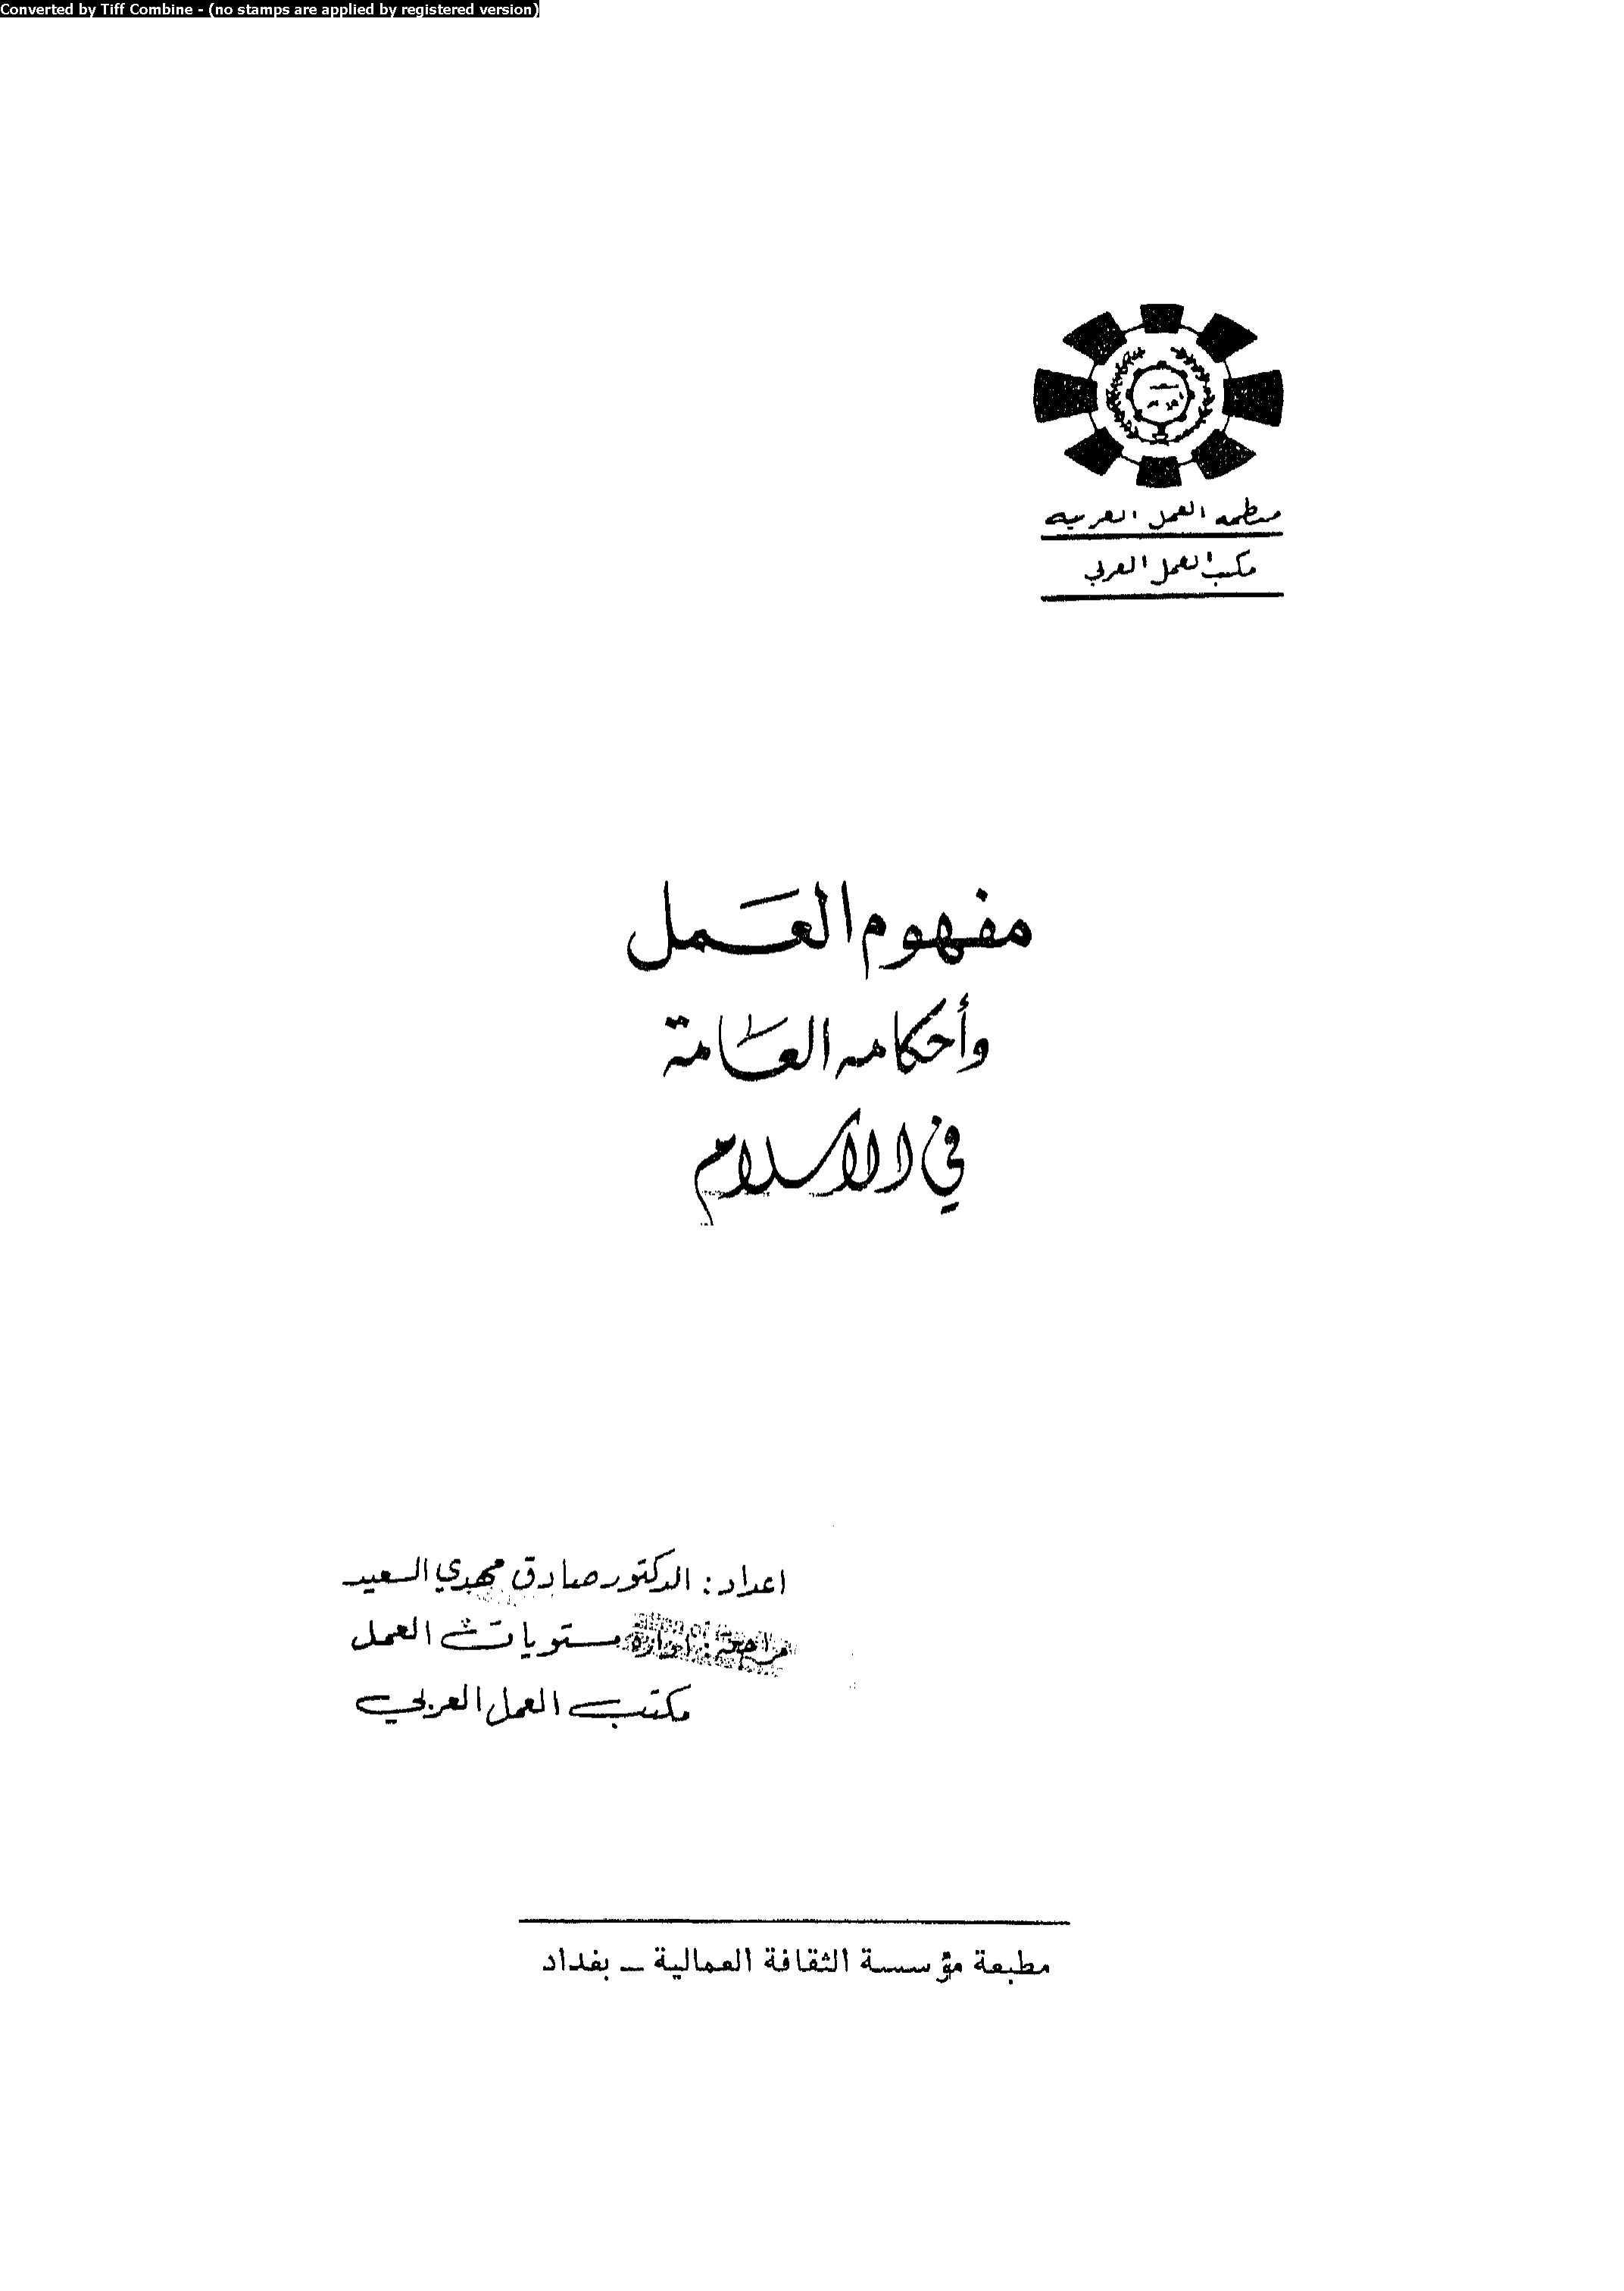 Converted by Tiff Combine - (no stamps are applied by registered version)
منظمة العمل العربية
مكتب العمل العربي
مفهوم العمل
وأحكامه العامة
في الاسلام
اعداد : الدكتور صادق مهدي السعيد
مراجعة : ادارة مستويات العمل
مكتب العمل العربي
مطبعة مؤسسة الثقافة العمالية — بغداد